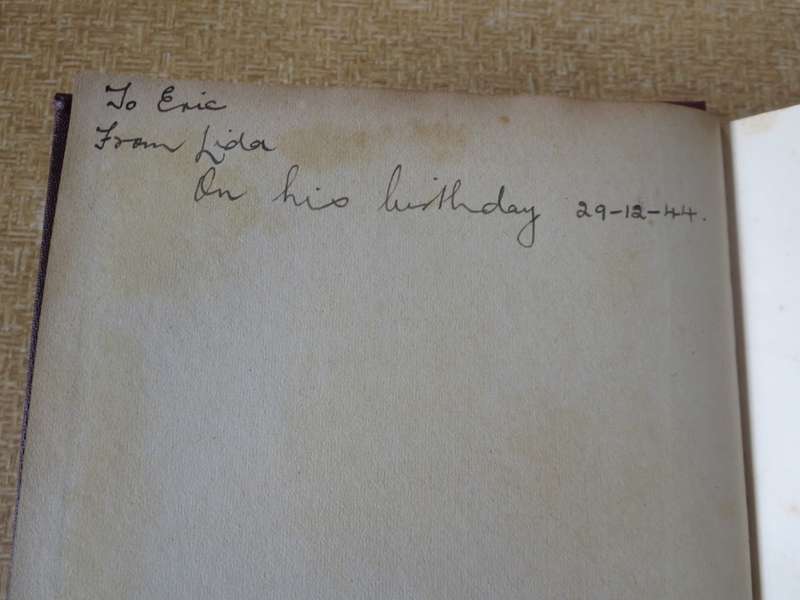 To Eric
From Lida
On his birthday 29-12-44.